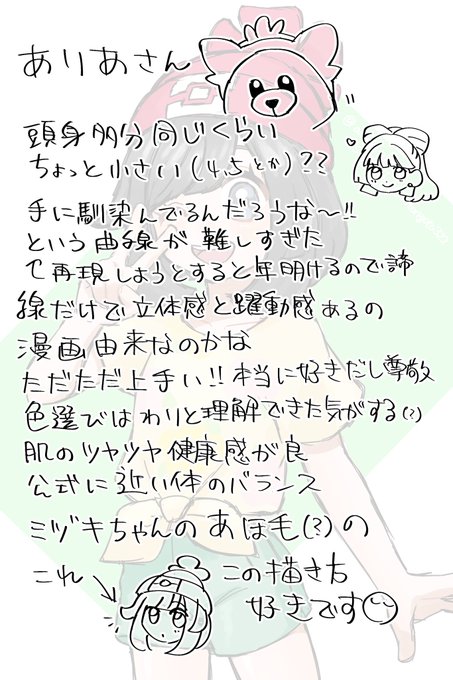 ありあさん
頭身多分同じくらい
ちょっと小さい(4,5とか)??
手に馴染んでるんだろうな〜!!
という曲線が難しすぎた
て再現しようとすると年明けるので諦
線だけで立体感と躍動感あるの
漫画由来なのかな
ただただ上手い!!本当に好きだし尊敬
色選びはわりと理解できた気がする(?)
肌のツヤツヤ健康感が良
公式に近い体のバランス
ミヅキちゃんのあほ毛(?)の
これ
この描き方
好きです